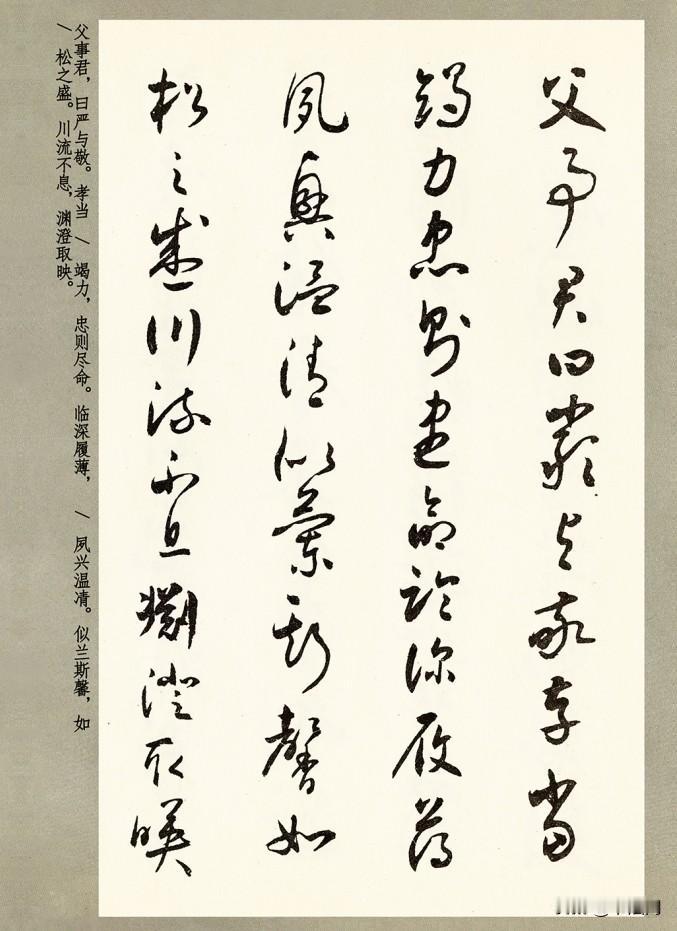 父事君曰嚴与敬孝當
竭力忠則盡命臨深履薄
夙興溫清似蘭斯馨如
松之盛川流不息淵澄取暎
父事君，曰严与敬。孝当 \ 竭力，忠则尽命。临深履薄， \ 夙兴温凊。似兰斯馨，如
\ 松之盛。川流不息，渊澄取映。